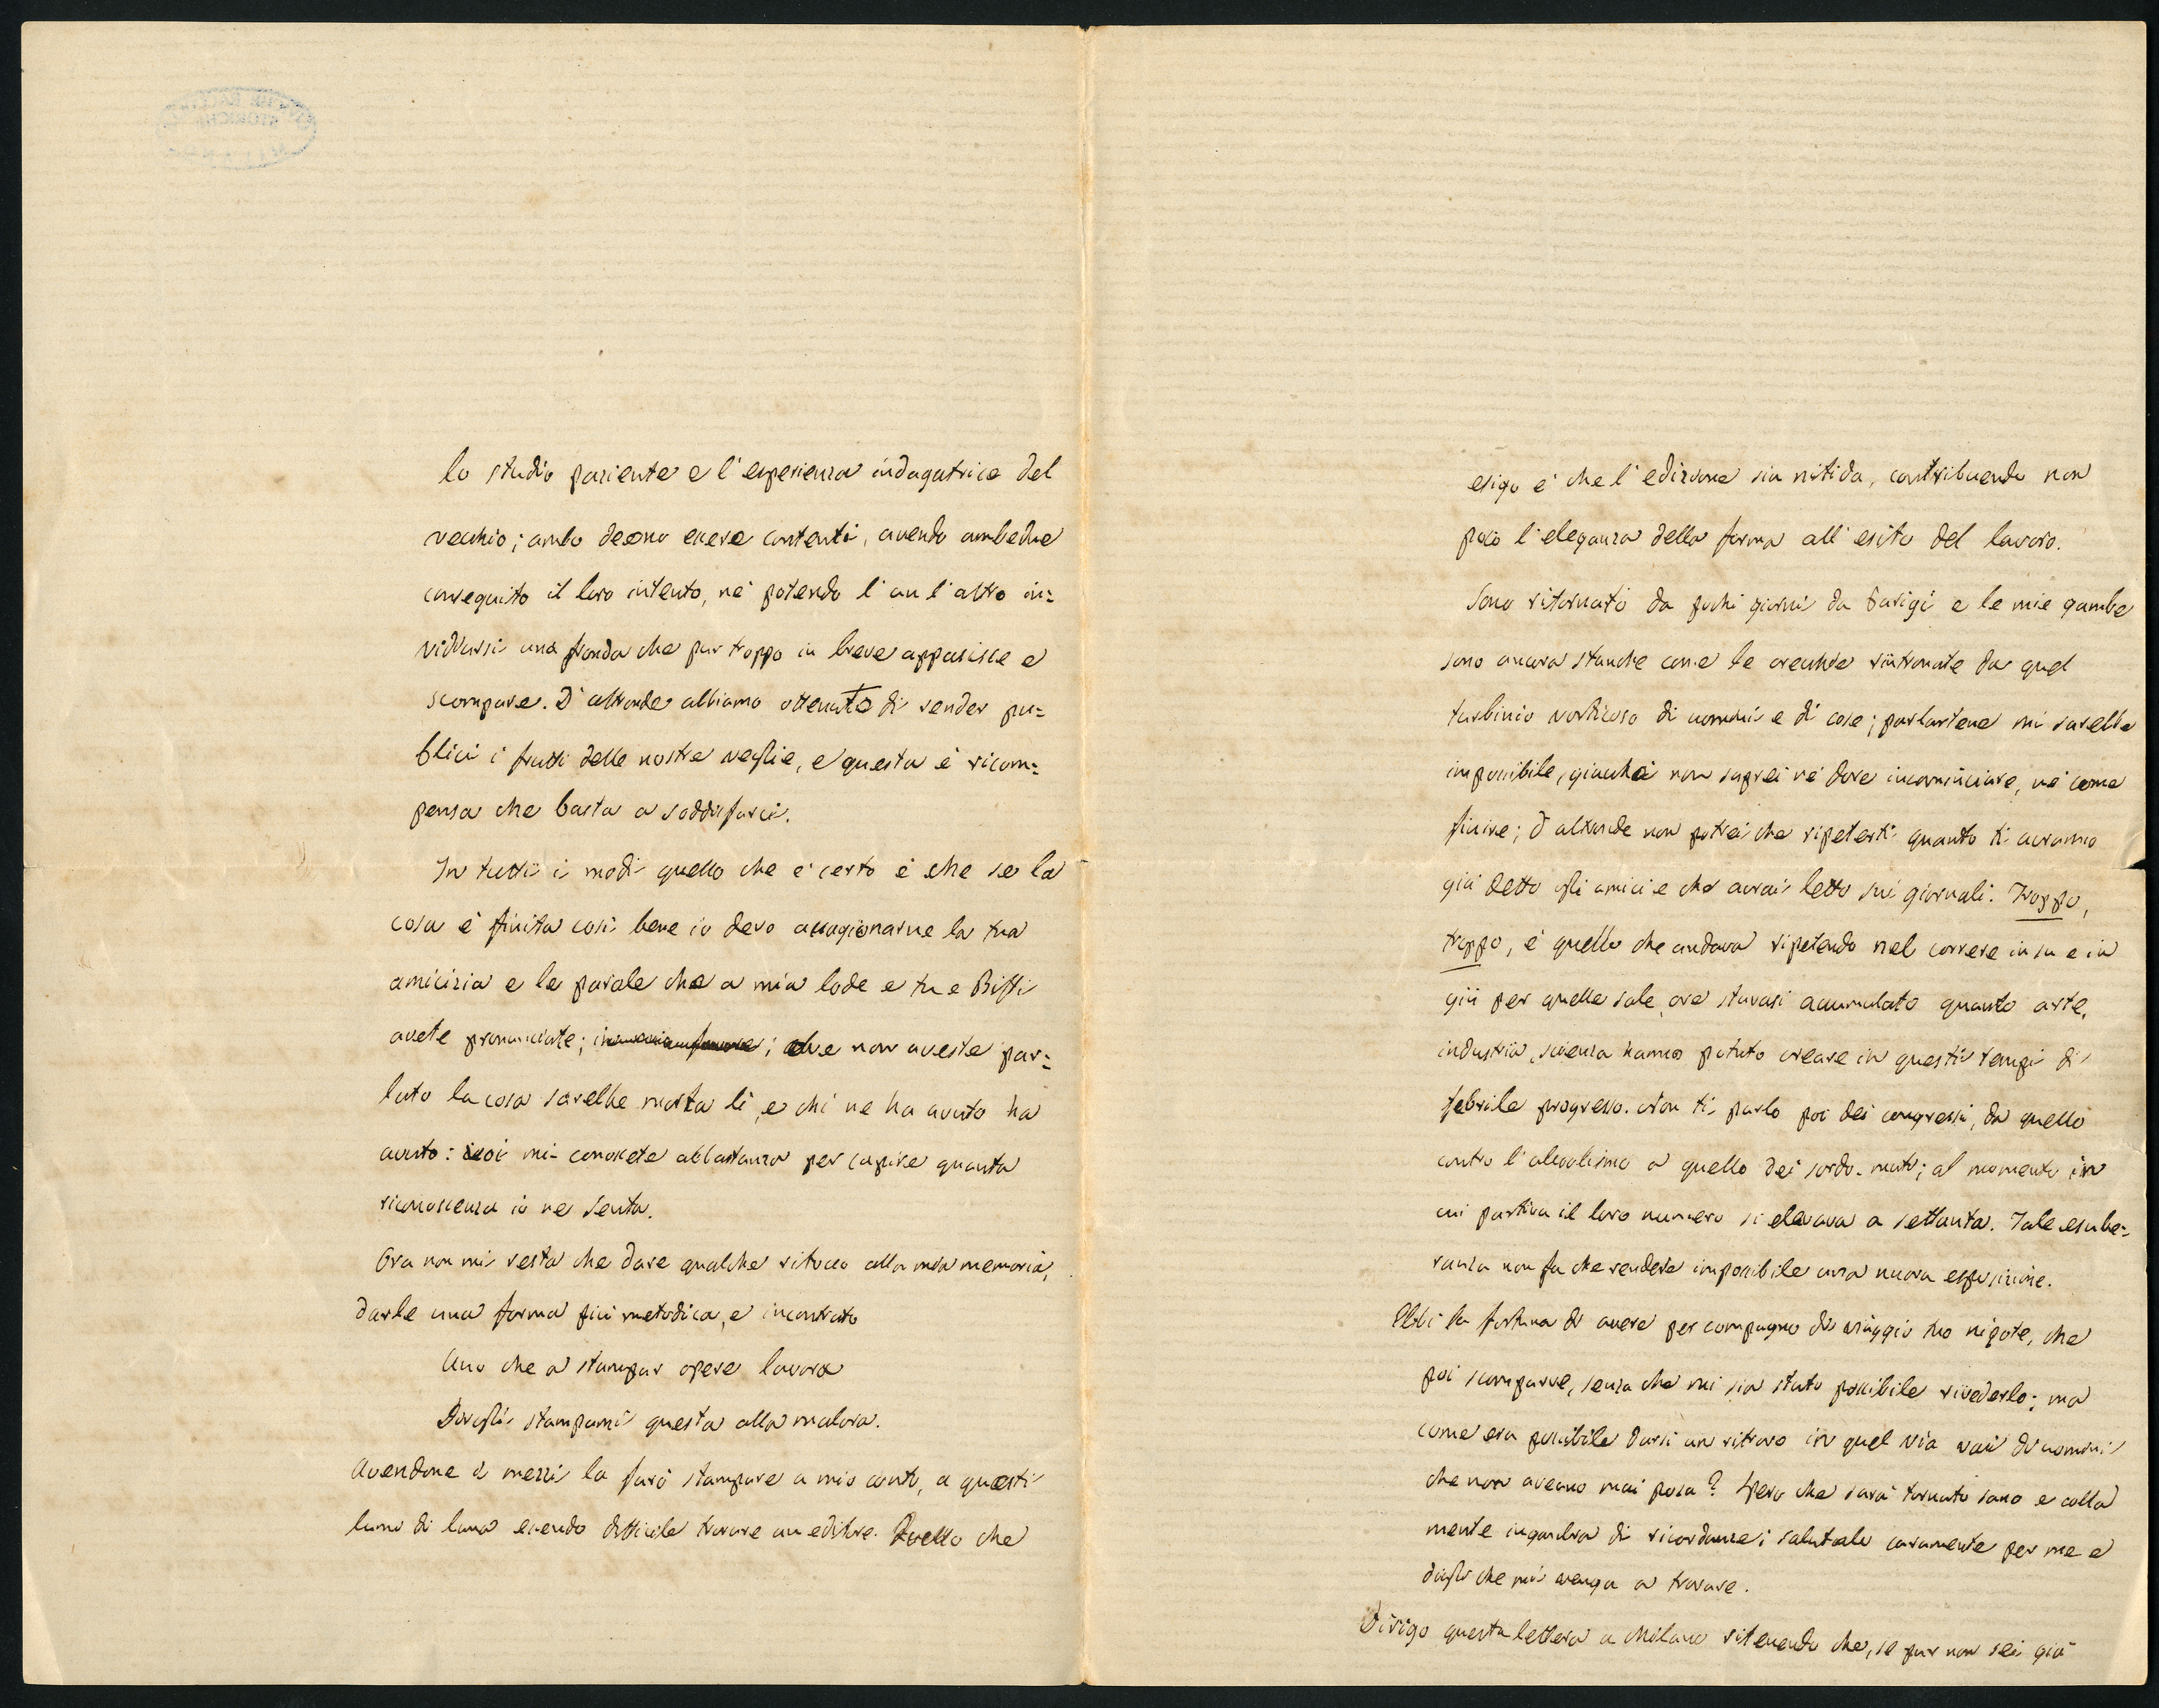 lo studio paziente e l'esperienza indagatrice del
vecchio; ambo deono essere contenti, avendo ambedue
conseguito il loro intento, nè potendo l'un l'altro in=
vidiarsi una fronda che pur troppo in breve appassisce e
scompare. D'altronde abbiamo ottenuto di render pu=
blici i frutti delle nostre veglie, e questa è ricom=
pensa che basta a soddisfarci.
In tutti i modi quello che è certo è che se la
cosa è finita così bene io devo accagionarne la tua
amicizia e le parole che a mia lode e tu e Biffi
avete pronunciate; ; che non aveste par=
lato la cosa sarebbe morta lì, e chi ne ha avuto ha
avuto: voi mi conoscete abbastanza per capire quanta
riconoscenza io ne senta.
Ora non mi resta che dare qualche ritocco alla mia memoria,
darle una forma più metodica, e incontrato
Uno che a stampar opere lavora
Dirogli stampami questa alla malora.
Avendone i mezzi la farò stampare a mio conto, a questi
lumi di luna essendo difficile trovare un editore. Quello che
esigo è che l'edizione sia nitida, contribuendo non
poco l'eleganza della forma all'esito del lavoro.
Sono ritornato da pochi giorni da Parigi e le mie gambe
sono ancora stanche come le orecchie rintronate da quel
turbinio vorticoso di uomini e di cose; parlartene mi sarebbe
impossibile, giacchè non saprei nè dove incominciare, nè come
finire; d'altronde non potrei che ripeterti quanto ti avranno
già detto gli amici e che avrai letto sui giornali. Troppo,
troppo, è quello che andava ripetendo nel correre in su e in
giù per quelle sale, ove stavasi accumulato quanto arte,
industria, scienza hanno potuto creare in questi tempi di
febrile progresso. Non ti parlo poi dei congressi, da quello
contro l'alcoolismo a quello dei sordo-muti; al momento in
cui partiva il loro numero si elevava a settanta. Tale esube=
ranza non fa che rendere impossibile una nuova esposizione.
Ebbi la fortuna di avere per compagno di viaggio tuo nipote, che
poi scomparve, senza che mi sia stato possibile rivederlo; ma
come era possibile darsi un ritrovo in quel via vai di uomini
che non aveano mai posa? Spero che sarà tornato sano e colla
mente ingombra di ricordanze; salutalo caramente per me e
digli che mi venga a trovare.
Dirigo questa lettera a Milano ritenendo che, se pur non sei già